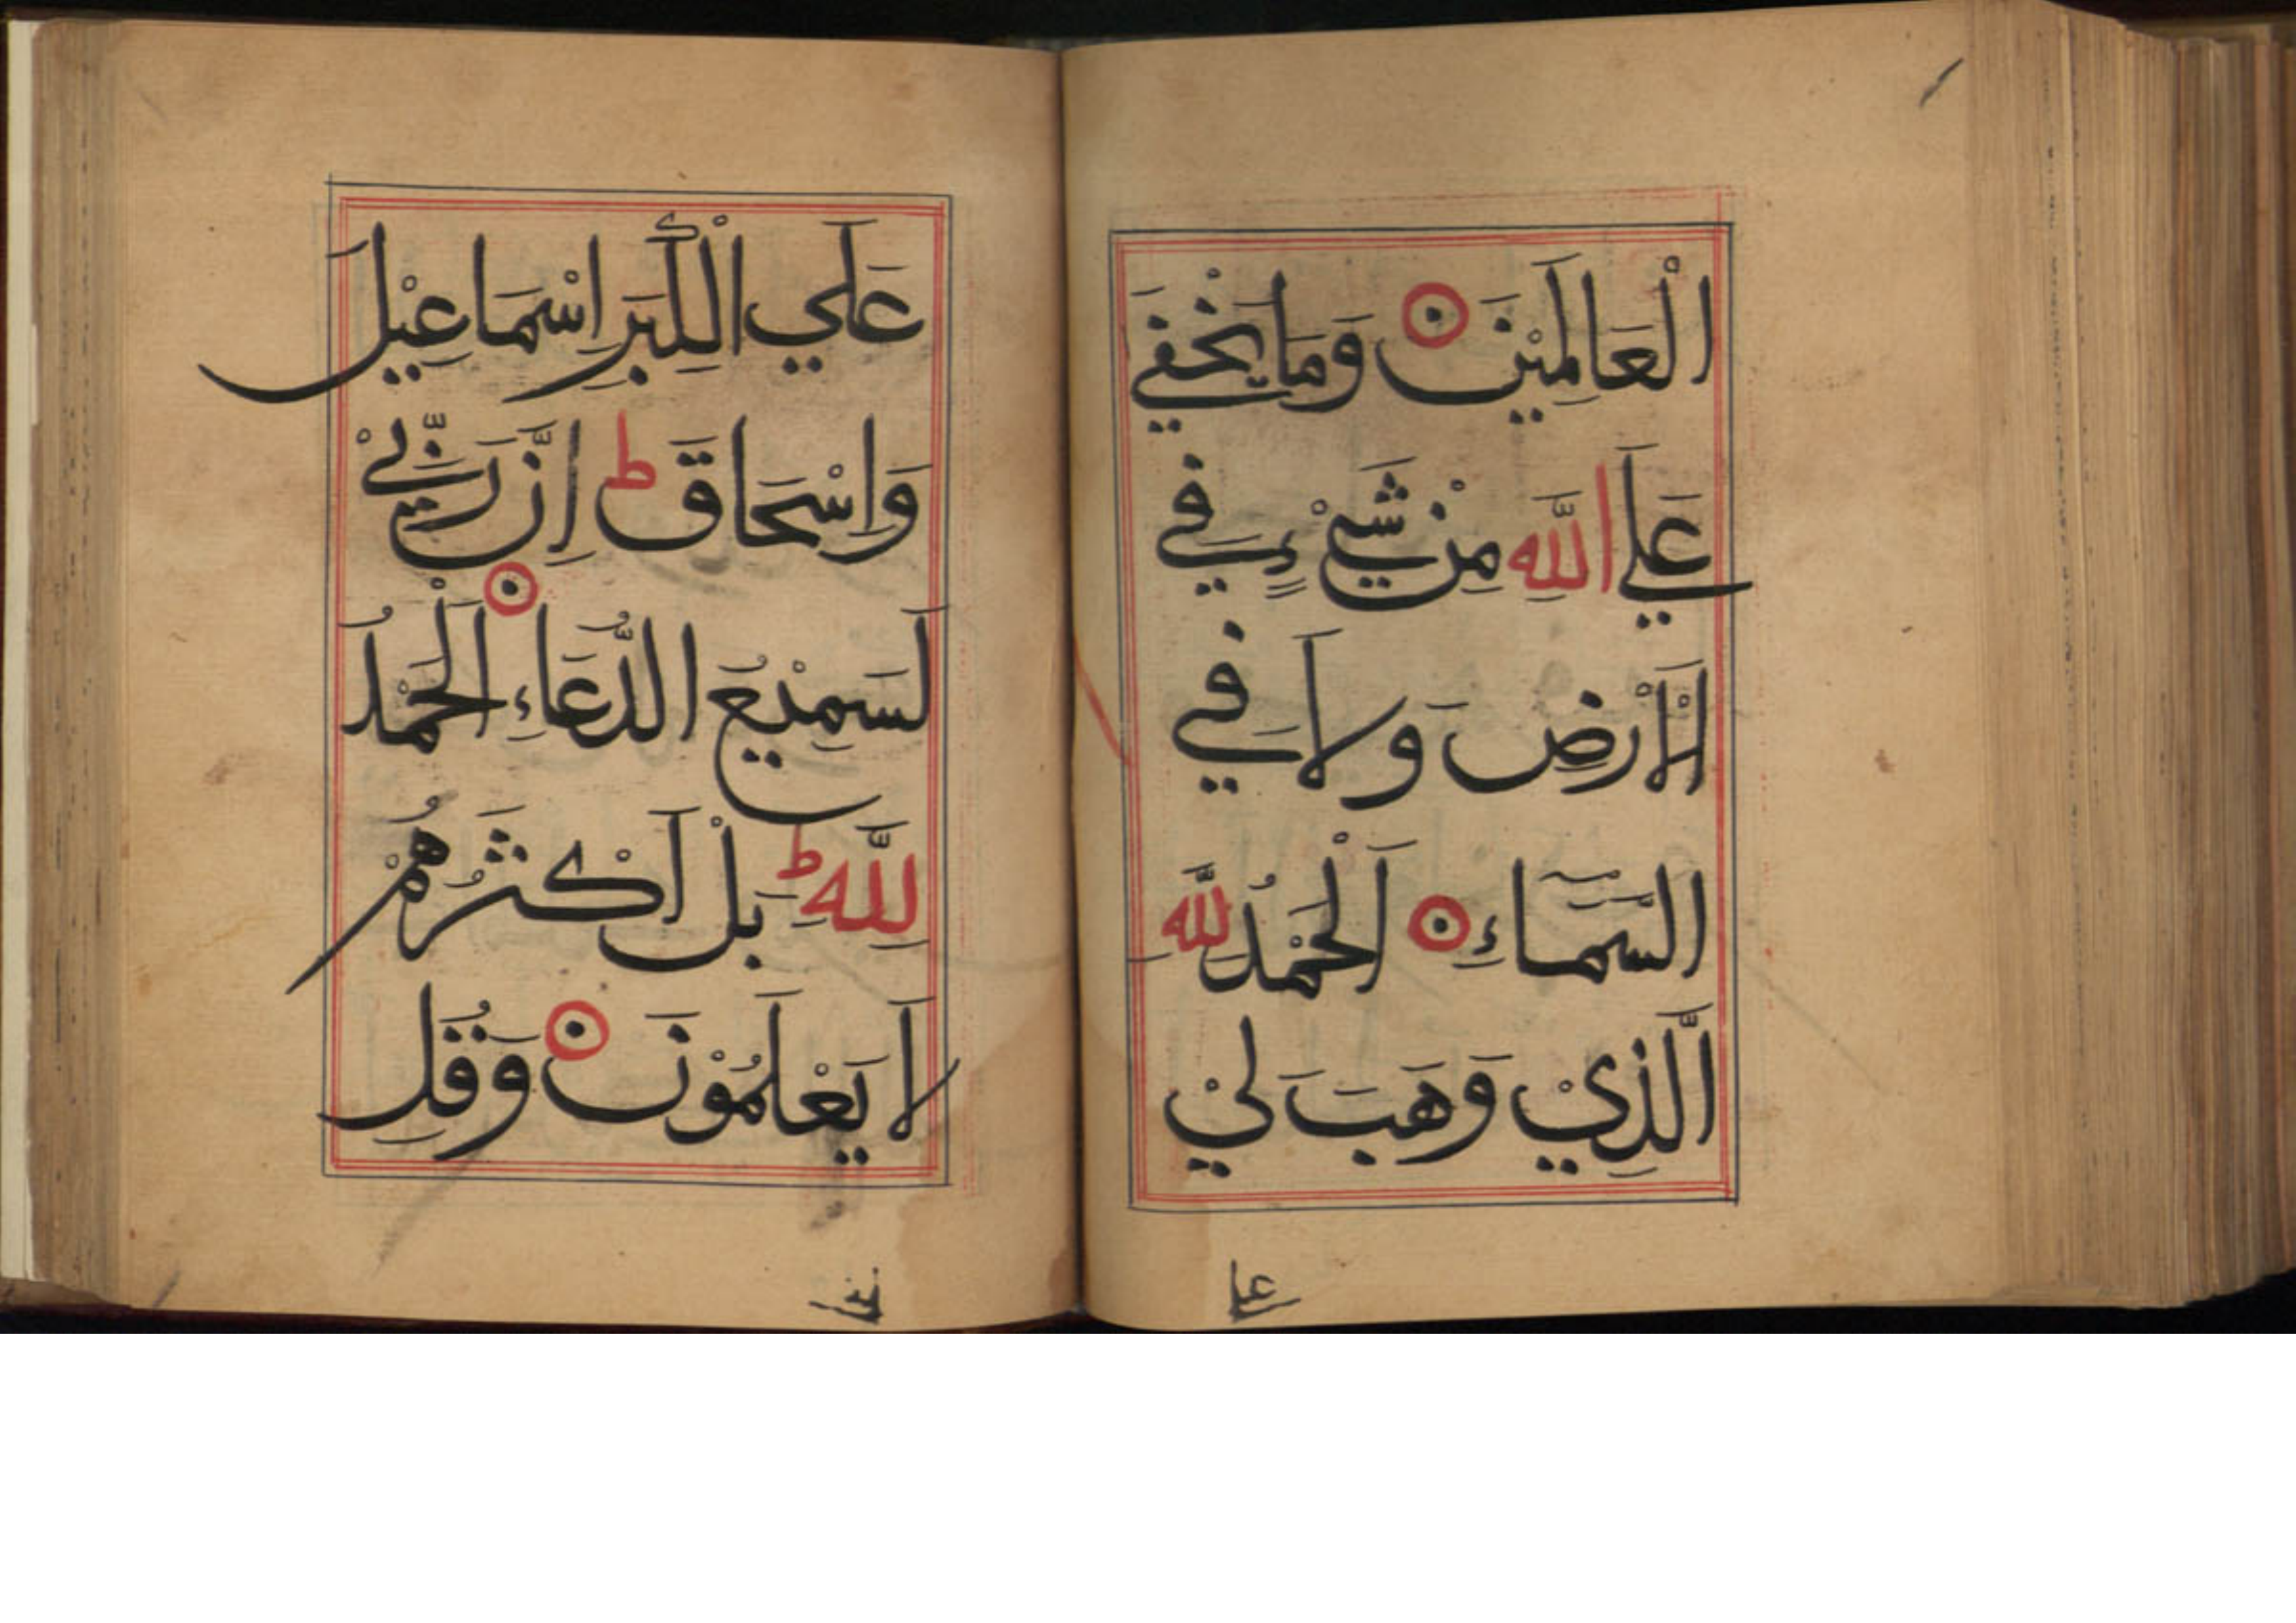 الْعَالَمِيْنَ ۝ وَمَا يَخْفَي
عَلَي اللّٰهِ مِنْ شَيْءٍ فِي
الْاَرْضِ وَلَا فِي
السَّمَآءِ ۝ اَلْحَمْدُ لِلّٰهِ
الَّذِيْ وَهَبَ لِيْ
عل
عَلَي الْكِبَرِ اِسْمَاعِيْلَ
وَاِسْحَاقَ ط اِنَّ رَبِّيْ
لَسَمِيْعُ الدُّعَاءِ ۝ اَلْحَمْدُ
لِلّٰهِ ط بَلْ اَكْثَرُهُمْ
لَا يَعْلَمُوْنَ ۝ وَقُلِ